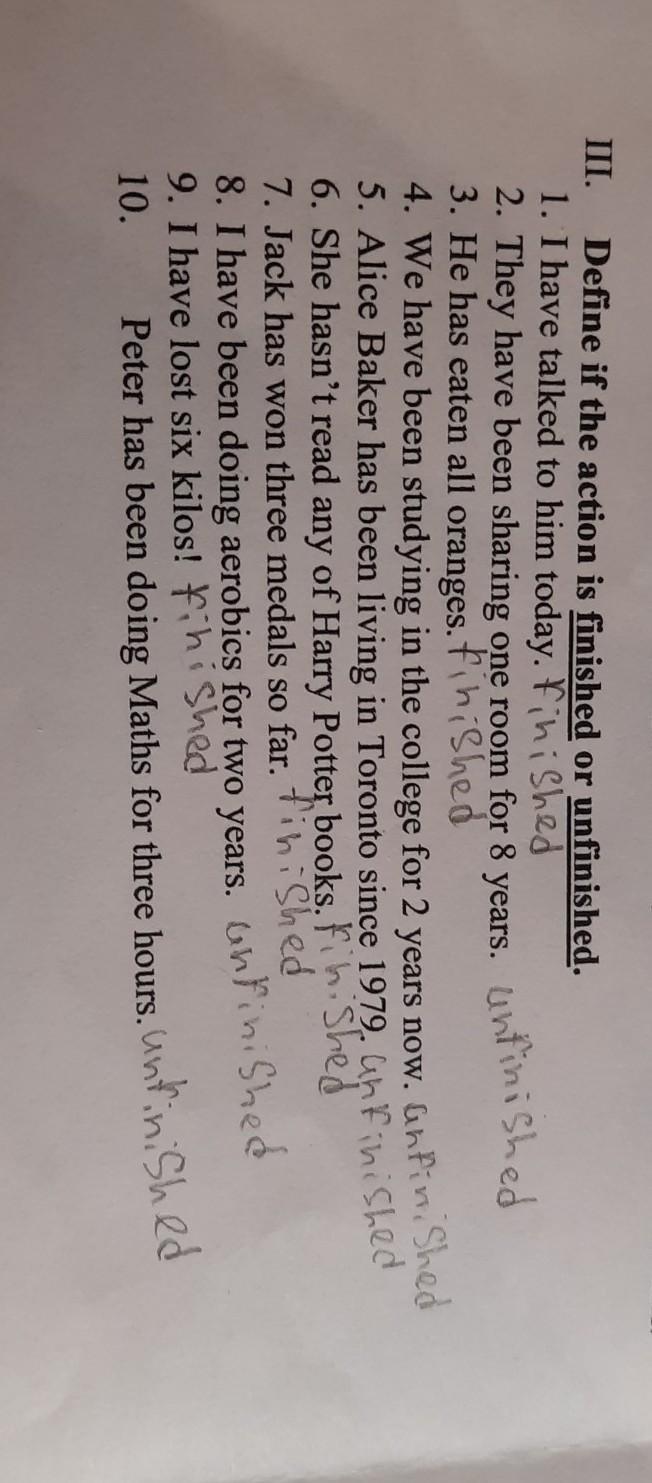 III. Define if the action is finished or unfinished.
1. I have talked to him today. finished
2. They have been sharing one room for 8 years. unfinished
3. He has eaten all oranges. finished
4. We have been studying in the college for 2 years now. unfinished
5. Alice Baker has been living in Toronto since 1979. unfinished
6. She hasn't read any of Harry Potter books. finished
7. Jack has won three medals so far. finished
8. I have been doing aerobics for two years. unfinished
9. I have lost six kilos! finished
10. Peter has been doing Maths for three hours. unfinished